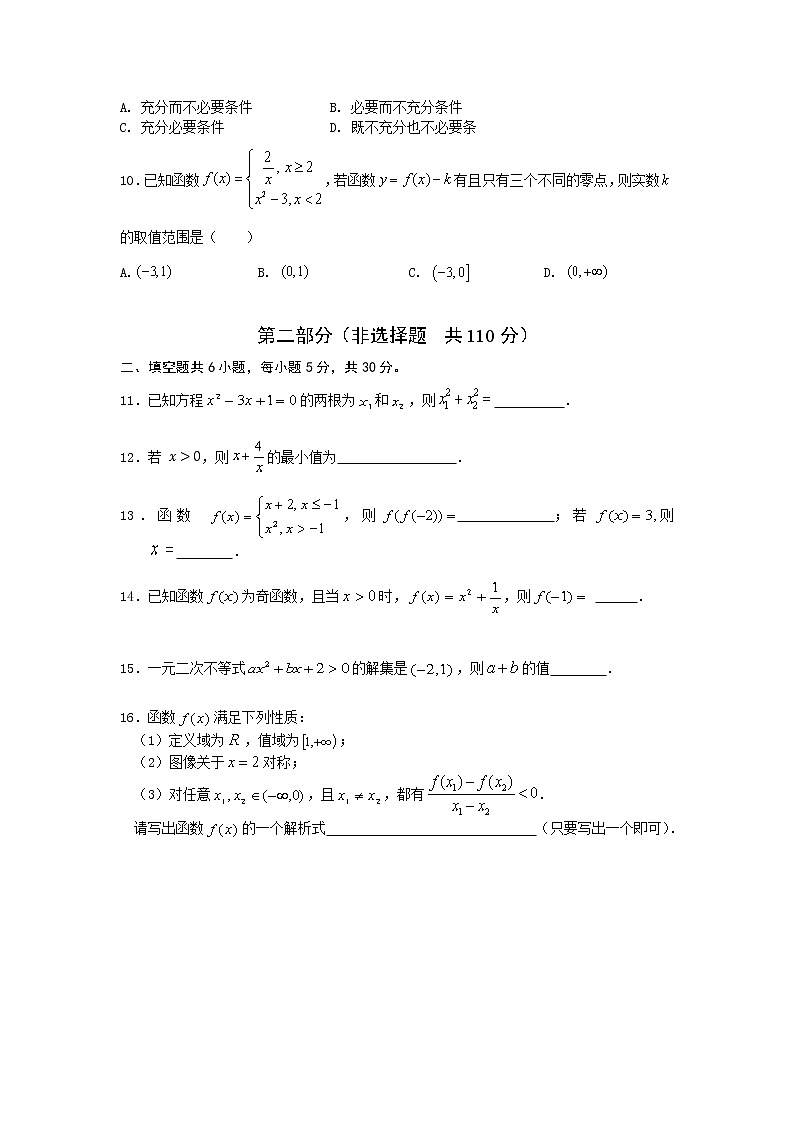 A. 充分而不必要条件 B. 必要而不充分条件
C. 充分必要条件 D. 既不充分也不必要条
10.已知函数 f(x) = { 2/x, x ≥ 2 ; x² − 3, x < 2 ,若函数 y = f(x) − k 有且只有三个不同的零点,则实数 k
的取值范围是( )
A. (−3,1) B. (0,1) C. (−3,0] D. (0,+∞)
第二部分(非选择题 共 110 分)
二、填空题共 6 小题，每小题 5 分，共 30 分。
11.已知方程 x² − 3x + 1 = 0 的两根为 x₁ 和 x₂ ，则 x₁² + x₂² = __________.
12.若 x > 0,则 x + 4/x 的最小值为_________________.
13 . 函数 f(x) = { x + 2, x ≤ −1 ; x², x > −1 ，则 f(f(−2)) = ______________; 若 f(x) = 3, 则
x = ________.
14.已知函数 f(x) 为奇函数，且当 x > 0 时， f(x) = x² + 1/x ，则 f(−1) = ______.
15.一元二次不等式 ax² + bx + 2 > 0 的解集是 (−2,1) ，则 a + b 的值________.
16.函数 f(x) 满足下列性质:
(1)定义域为 R ，值域为 [1,+∞) ;
(2)图像关于 x = 2 对称;
(3)对任意 x₁, x₂ ∈ (−∞,0) ，且 x₁ ≠ x₂ ，都有 (f(x₁) − f(x₂))/(x₁ − x₂) < 0 .
请写出函数 f(x) 的一个解析式______________________________(只要写出一个即可).